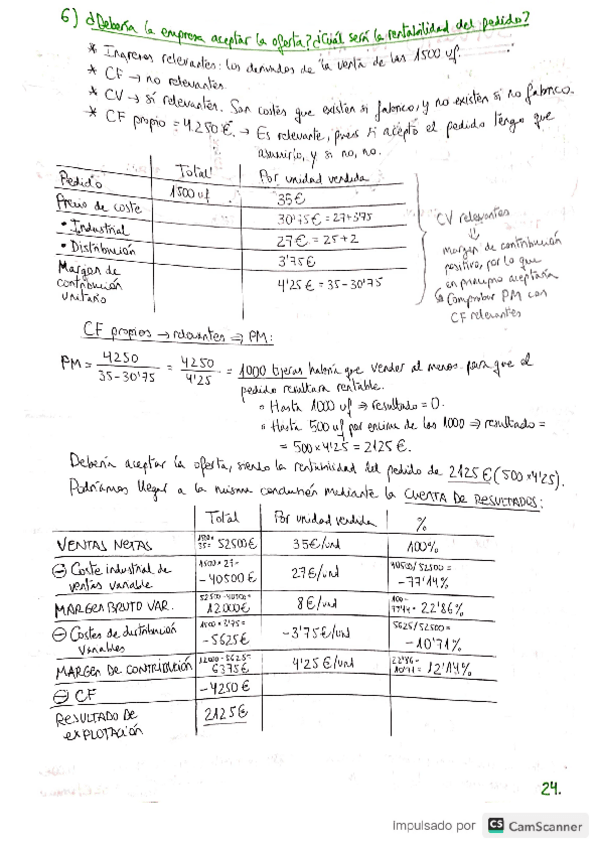 6) ¿Debería la empresa aceptar la oferta? ¿Cuál será la rentabilidad del pedido?
* Ingresos relevantes: los derivados de la venta de las 1500 uf.
* CF → no relevantes.
* CV → sí relevantes. Son costes que existen si fabrico, y no existen si no fabrico.
* CF propio = 4.250 €. → Es relevante, pues si acepto el pedido tengo que
asumirlo, y si no, no.
Total Por unidad vendida
Pedido 1500 uf
Precio de coste 35€
30'75€ = 27+3'75
• Industrial 27€ = 25+2
• Distribución 3'75€
Margen de contribución unitario 4'25€ = 35-30'75
CV relevantes
⇓
margen de contribución
positivo, por lo que
en principio aceptaría
↳ Comprobar PM con
CF relevantes
CF propios → relevantes ⇒ PM:
PM = 4250 / 35-30'75 = 4250 / 4'25 = 1000 tijeras habría que vender al menos para que el
pedido resultara rentable.
• Hasta 1000 uf ⇒ resultado = 0.
• Hasta 500 uf por encima de las 1000 ⇒ resultado =
= 500×4'25 = 2125 €.
Debería aceptar la oferta, siendo la rentabilidad del pedido de 2125€ (500×4'25).
Podríamos llegar a la misma conclusión mediante la CUENTA DE RESULTADOS:
Total Por unidad vendida %
VENTAS NETAS 1500× 35= 52500€ 35€/und 100%
⊖ Coste industrial de ventas variable 1500×27= -40500€ 27€/und 40500/52500= -77'14%
MARGEN BRUTO VAR. 52500-40500= 12.000€ 8€/und 100- 77'14= 22'86%
⊖ Costes de distribución variables 1500×3'75= -5625€ -3'75€/und 5625/52500= -10'71%
MARGEN DE CONTRIBUCIÓN 12000-5625= 6375€ 4'25€/und 22'86- 10'71= 12'14%
⊖ CF -4250€
RESULTADO DE EXPLOTACIÓN 2125€
24.
Impulsado por CS CamScanner